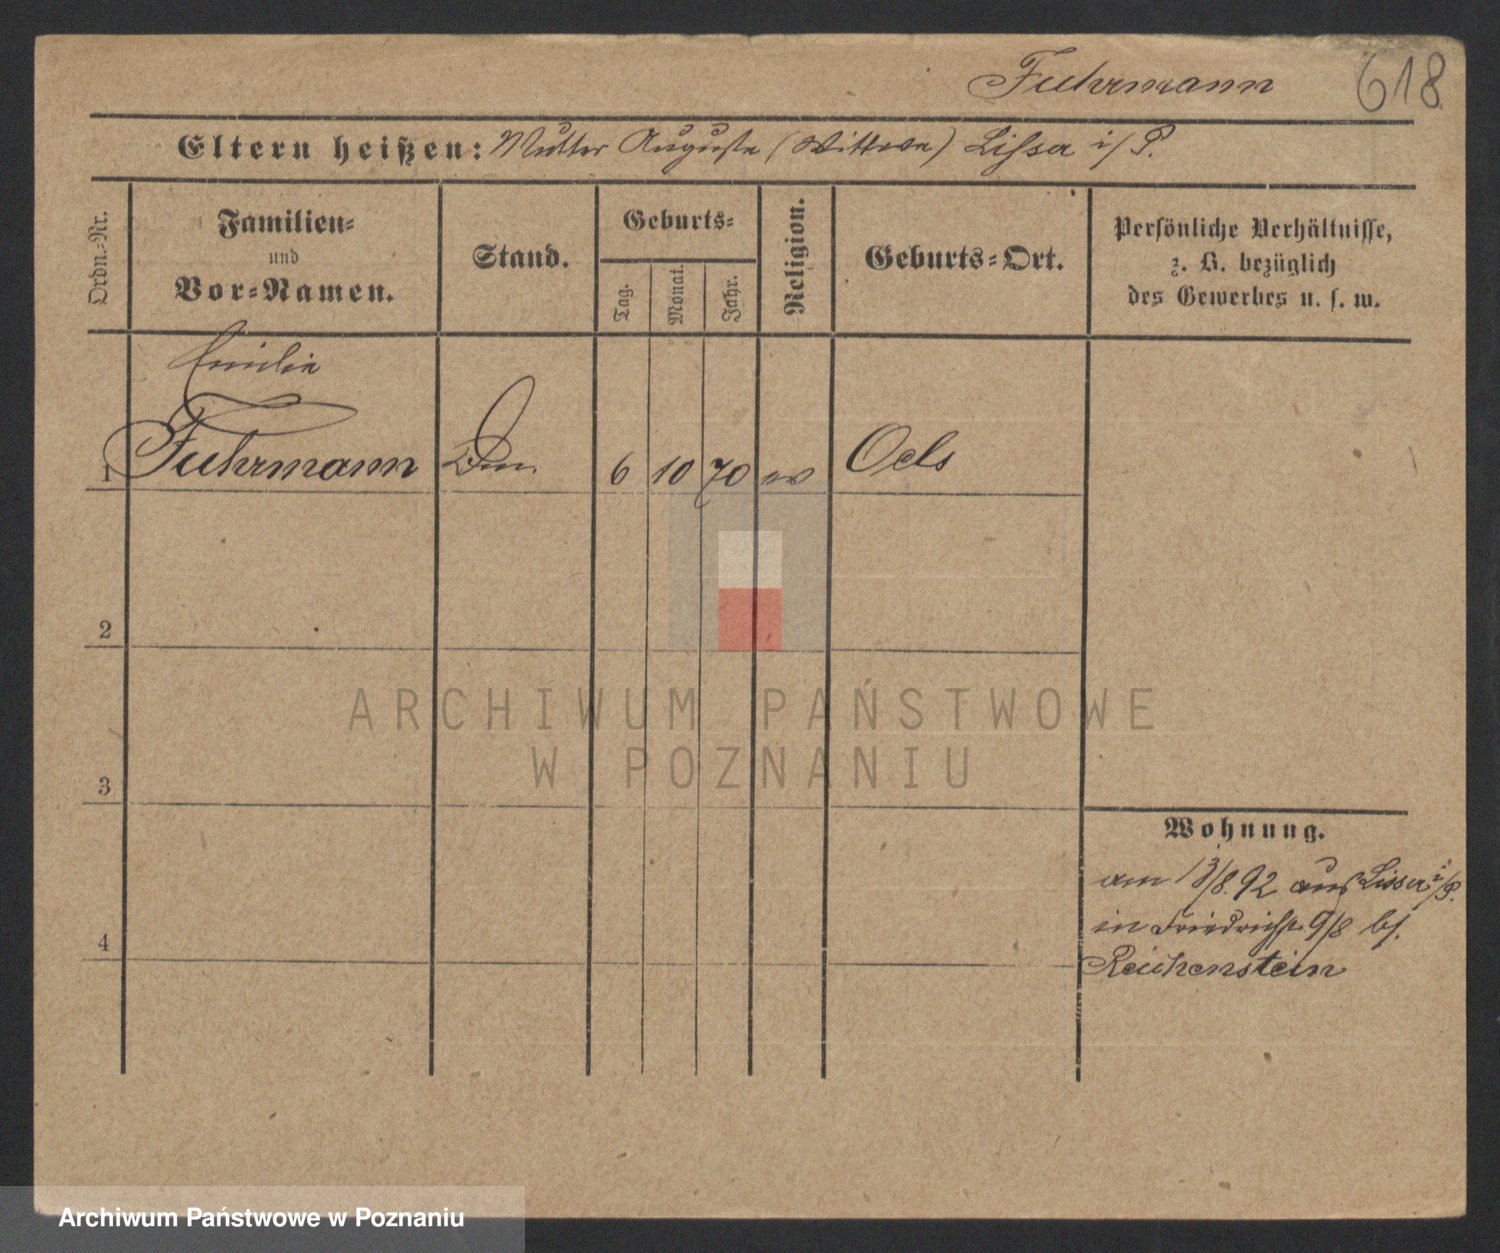 Fuhrmann 618
Eltern heißen: Mutter Auguste (Wittwe) Lissa i/P.
Ordn.-Nr.
Familien-
und
Vor-Namen.
Stand.
Geburts-
Tag.
Monat.
Jahr.
Religion.
Geburts-Ort.
Persönliche Verhältnisse,
z. B. bezüglich
des Gewerbes u. s. w.
Emilie
1 Fuhrmann 6 10 70 ev Oels
2
3
4
ARCHIWUM PAŃSTWOWE
W POZNANIU
Wohnung.
am 13/8.92 aus Lissa i/P.
in Friedrichstr 9/8 bf.
Reichenstein
Archiwum Państwowe w Poznaniu